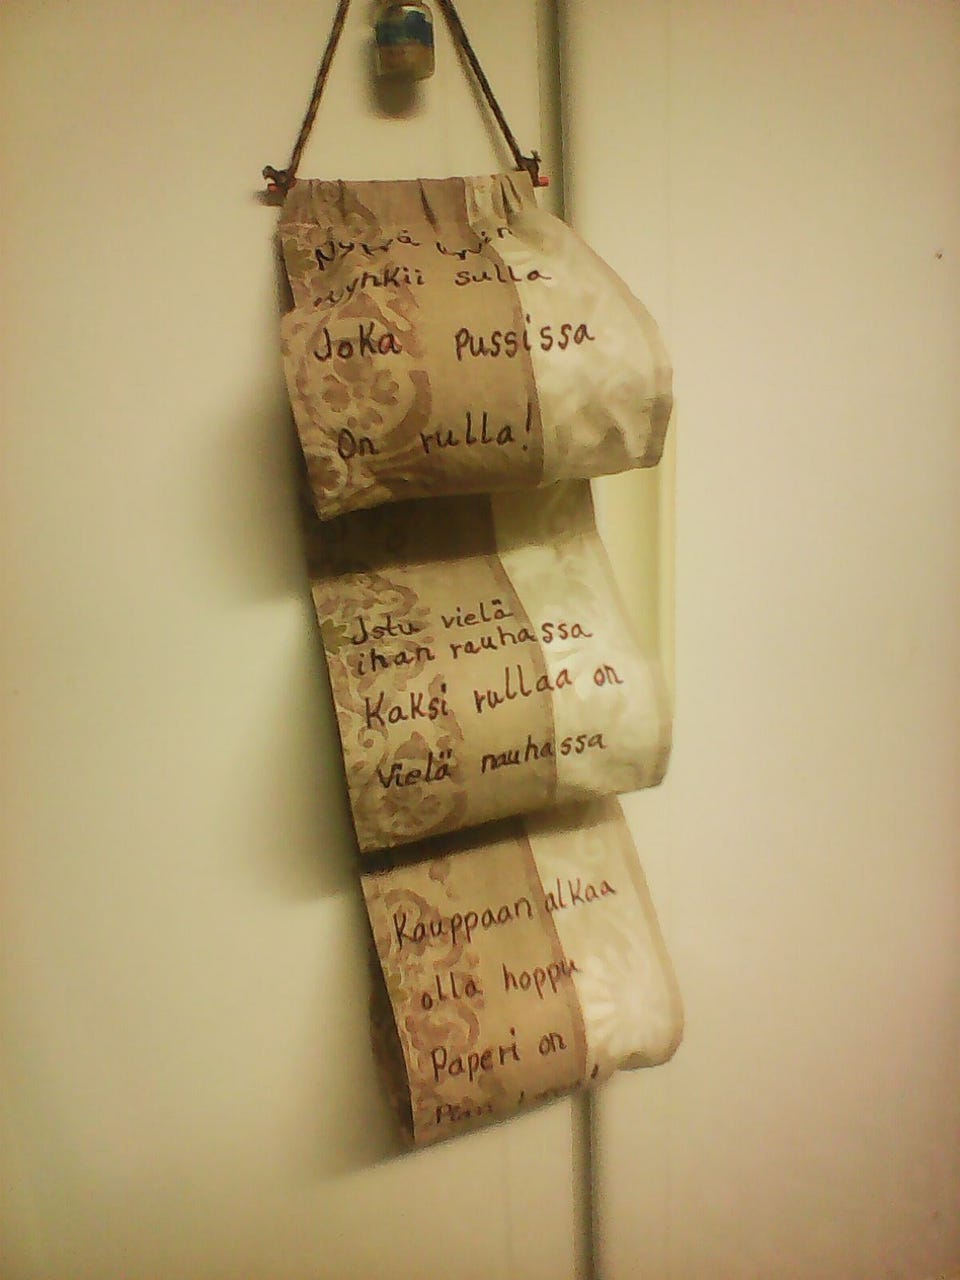 sulla
Joka pussissa
On rulla!
Istu vielä
ihan rauhassa
Kaksi rullaa on
Vielä nauhassa
Kauppaan alkaa
olla hoppu
Paperi on